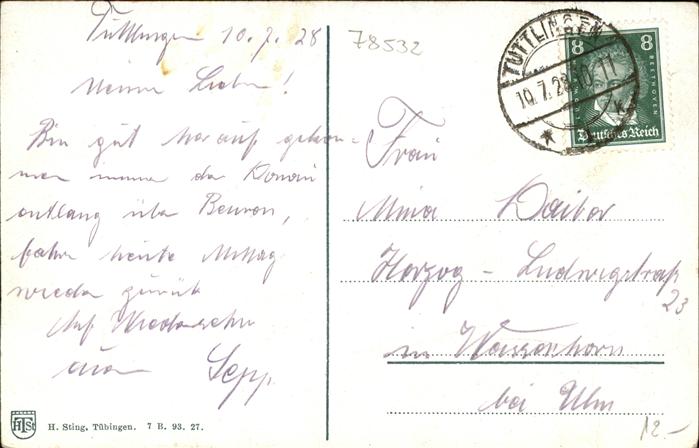 Tuttlingen 10.7.28
Meine Lieben!
Bin gut herauf gekom-
men immer der Donau
entlang über Beuron,
fahre heute Mittag
wieder zurück
Auf Wiedersehn
euer Sepp
H. Sting, Tübingen. 7 B. 93. 27.
HSt
78532
TUTTLINGEN
10.7.28.10-11
8 8
BEETHOVEN
Deutsches Reich
Frau
Mina Daiber
Herzog-Ludwigstraße
23
in Weissenhorn
bei Ulm
12-